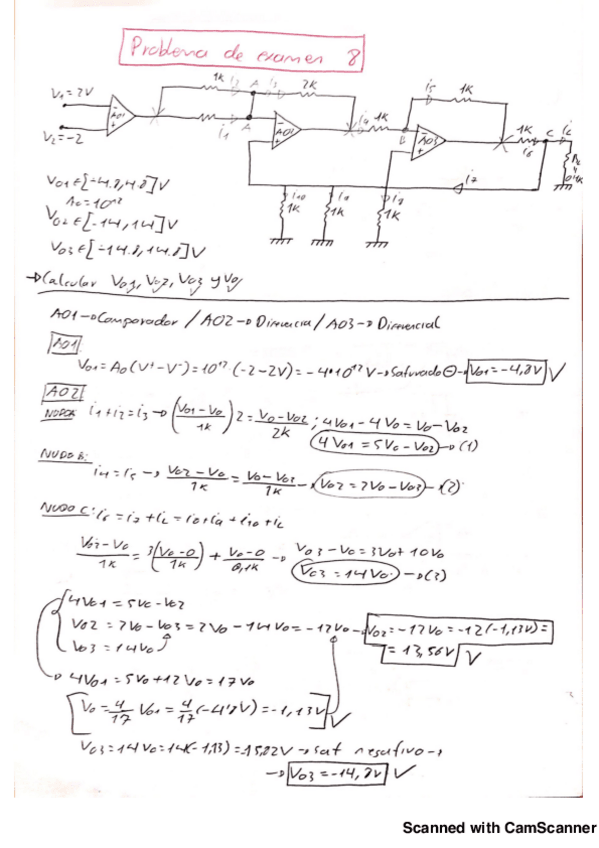 Problema de examen 8
V1=2V
V2=-2
1K
i2
A
i3
2K
i1
A
AO1
AO2
i4
1K
B
i5
1K
AO3
1K
i6
C
iL
RL
0'1K
i7
i10
1K
i9
1K
i8
1K
Vo1 ∈ [-4.8, 4.8] V
Ao = 10^12
Vo2 ∈ [-14, 14] V
Vo3 ∈ [-14.8, 14.8] V
→ Calcular Vo1, Vo2, Vo3 y Vo
AO1 → Comparador / AO2 → Diferencia / AO3 → Diferencial
AO1
Vo1 = Ao(V+ - V-) = 10^12 · (-2-2V) = -4·10^12 V → saturado ⊖ → Vo1 = -4,8V V
AO2
NUDO A: i1 + i2 = i3 → (Vo1 - Vo / 1K) 2 = Vo - Vo2 / 2K ; 4Vo1 - 4Vo = Vo - Vo2
4Vo1 = 5Vo - Vo2 → (1)
NUDO B:
i4 = i5 → Vo2 - Vo / 1K = Vo - Vo3 / 1K → Vo2 = 2Vo - Vo3 → (2)
NUDO C: i6 = i7 + iL = i8 + i9 + i10 + iL
Vo3 - Vo / 1K = 3(Vo - 0 / 1K) + Vo - 0 / 0,1K → Vo3 - Vo = 3Vo + 10Vo
Vo3 = 14Vo → (3)
4Vo1 = 5Vo - Vo2
Vo2 = 2Vo - Vo3 = 2Vo - 14Vo = -12Vo → Vo2 = -12Vo = -12(-1,13V) =
Vo3 = 14Vo
= 13,56V V
→ 4Vo1 = 5Vo + 12Vo = 17Vo
Vo = 4/17 Vo1 = 4/17 (-4'8V) = -1,13V V
Vo3 = 14Vo = 14(-1,13) = -15,82V → sat negativo →
→ Vo3 = -14,8V V
Scanned with CamScanner